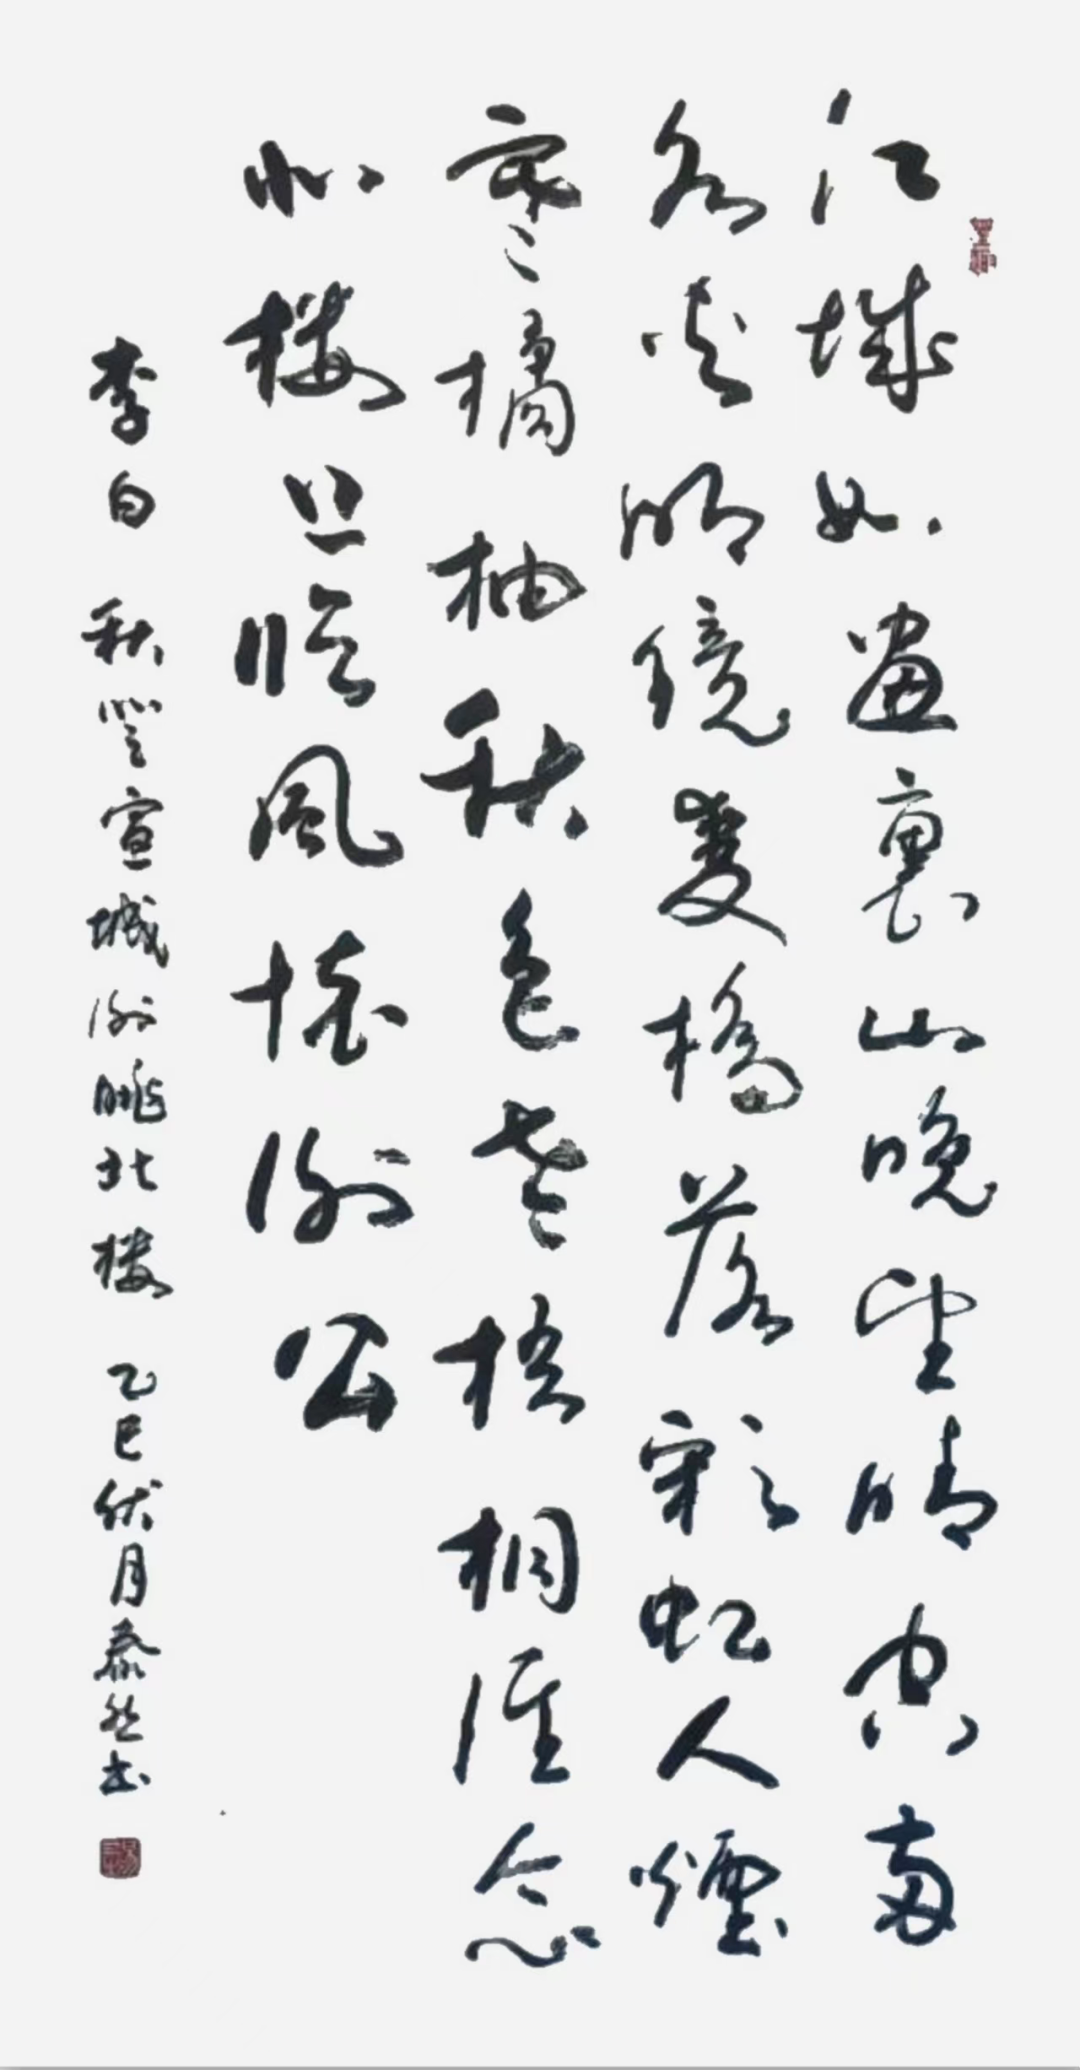 江城如畫裏山晚望晴空兩
水夾明鏡雙橋落彩虹人煙
寒橘柚秋色老梧桐誰念
北樓上臨風懷謝公
李白 秋登宣城謝朓北樓 乙巳伏月泰然书